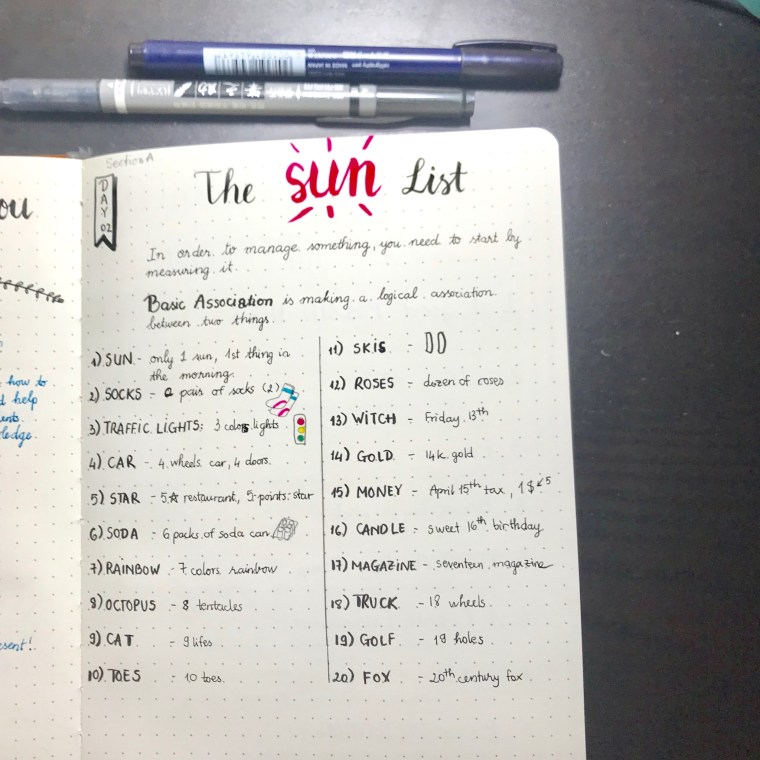 Section A
DAY 02
The sun List
In order to manage something, you need to start by
measuring it.
Basic Association is making a logical association
between two things.
1) SUN - only 1 sun, 1st thing in
the morning.
2) SOCKS - a pair of socks (2)
3) TRAFFIC LIGHTS: 3 colors lights
4) CAR - 4 wheels car, 4 doors.
5) STAR - 5☆ restaurant, 5-points star
6) SODA - 6 packs of soda can
7) RAINBOW - 7 colors rainbow
8) OCTOPUS - 8 tentacles
9) CAT - 9 lifes
10) TOES - 10 toes
11) SKIS -
12) ROSES - dozen of roses
13) WITCH - Friday 13th
14) GOLD - 14k gold
15) MONEY - April 15th tax, 1$
16) CANDLE - sweet 16th birthday
17) MAGAZINE - seventeen magazine
18) TRUCK - 18 wheels
19) GOLF - 19 holes
20) FOX - 20th century fox
ou
how to
help
ledge
esent!